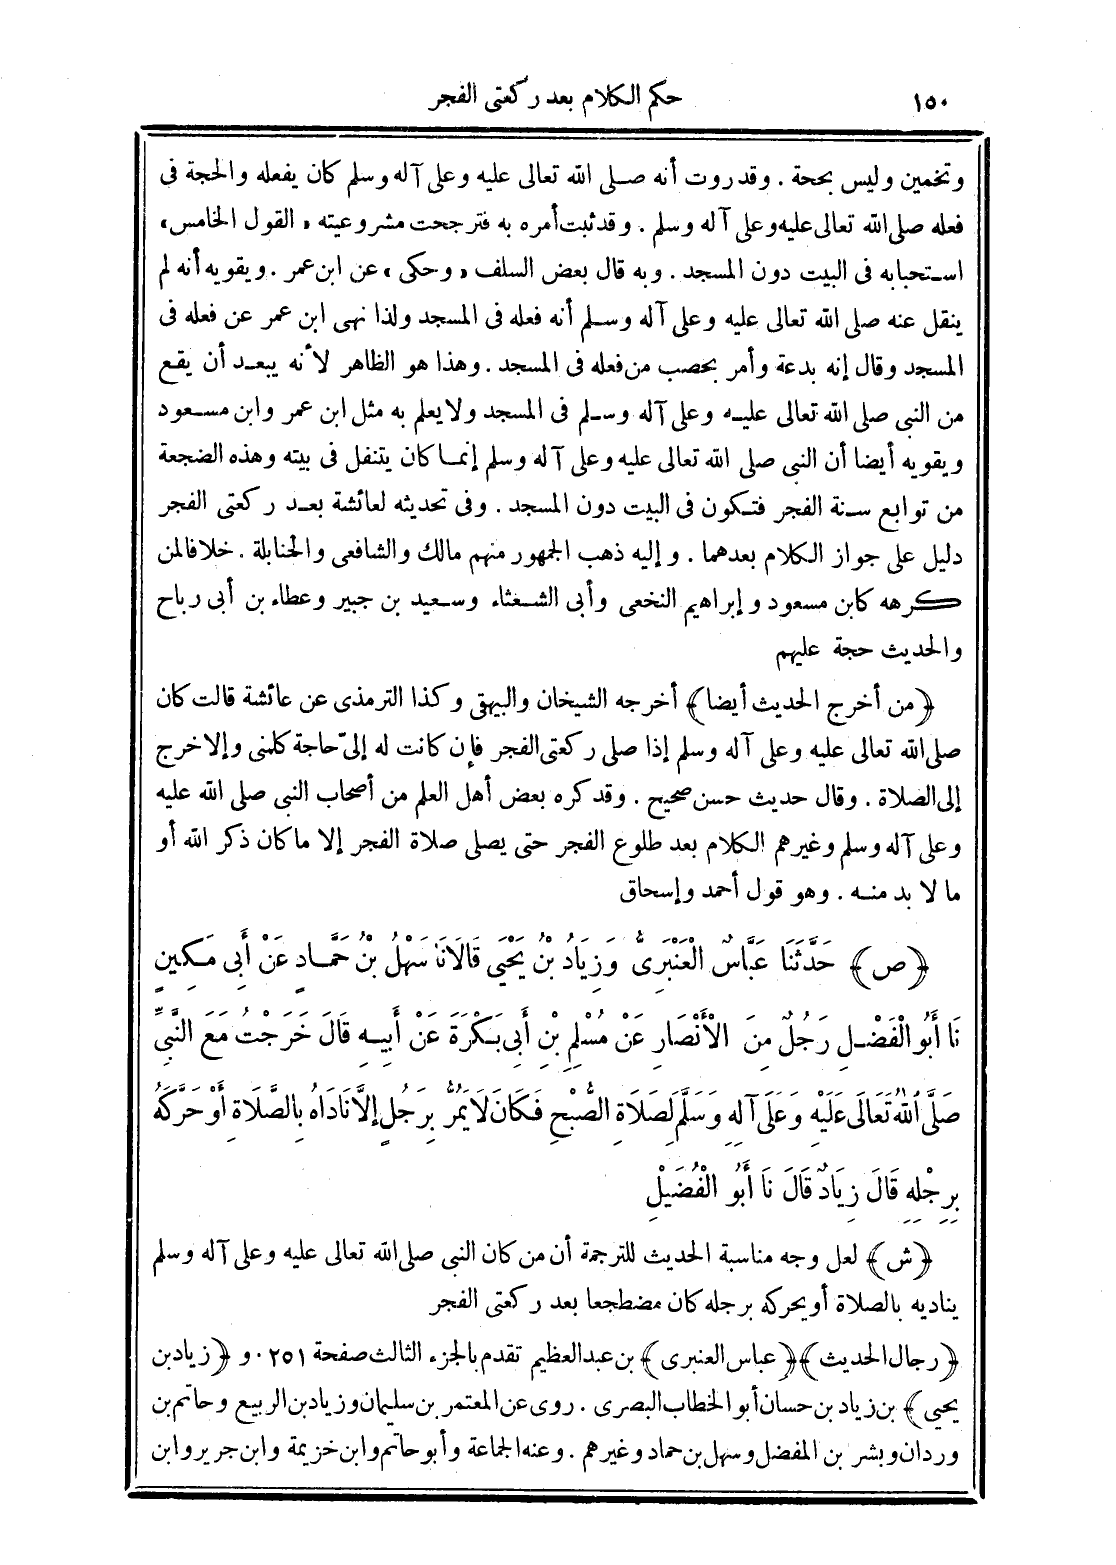 ١٥٠ حكم الكلام بعد ركعتى الفجر
وتخمين وليس بحجة . وقد روت أنه صلى الله تعالى عليه وعلى آله وسلم كان يفعله والحجة فى
فعله صلى الله تعالى عليه وعلى آله وسلم . وقد ثبت أمره به فترجحت مشروعيته «القول الخامس»
استحبابه فى البيت دون المسجد . وبه قال بعض السلف «وحكى» عن ابن عمر . ويقويه أنه لم
ينقل عنه صلى الله تعالى عليه وعلى آله وسلم أنه فعله فى المسجد ولذا نهى ابن عمر عن فعله فى
المسجد وقال إنه بدعة وأمر بحصب من فعله فى المسجد . وهذا هو الظاهر لأنه يبعد أن يقع
من النبى صلى الله تعالى عليه وعلى آله وسلم فى المسجد ولا يعلم به مثل ابن عمر وابن مسعود
ويقويه أيضا أن النبى صلى الله تعالى عليه وعلى آله وسلم إنما كان يتنفل فى بيته وهذه الضجعة
من توابع سنة الفجر فتكون فى البيت دون المسجد . وفى تحديثه لعائشة بعد ركعتى الفجر
دليل على جواز الكلام بعدهما . وإليه ذهب الجمهور منهم مالك والشافعى والحنابلة . خلافا لمن
كرهه كابن مسعود وإبراهيم النخعى وأبى الشعثاء وسعيد بن جبير وعطاء بن أبى رباح
والحديث حجة عليهم
﴿من أخرج الحديث أيضا﴾ أخرجه الشيخان والبيهقى وكذا الترمذى عن عائشة قالت كان
صلى الله تعالى عليه وعلى آله وسلم إذا صلى ركعتى الفجر فإن كانت له إلىّ حاجة كلمنى وإلا خرج
إلى الصلاة . وقال حديث حسن صحيح . وقد كره بعض أهل العلم من أصحاب النبى صلى الله عليه
وعلى آله وسلم وغيرهم الكلام بعد طلوع الفجر حتى يصلى صلاة الفجر إلا ما كان ذكر الله أو
ما لا بد منه . وهو قول أحمد وإسحاق
﴿ص﴾ حَدَّثَنَا عَبَّاسٌ الْعَنْبَرِىُّ وَزِيَادُ بْنُ يَحْيَى قَالَا نَا سَهْلُ بْنُ حَمَّادٍ عَنْ أَبِى مَكِينٍ
نَا أَبُو الْفَضْلِ رَجُلٌ مِنَ الْأَنْصَارِ عَنْ مُسْلِمِ بْنِ أَبِى بَكْرَةَ عَنْ أَبِيهِ قَالَ خَرَجْتُ مَعَ النَّبِىِّ
صَلَّى اللهُ تَعَالَى عَلَيْهِ وَعَلَى آلِهِ وَسَلَّمَ لِصَلَاةِ الصُّبْحِ فَكَانَ لَا يَمُرُّ بِرَجُلٍ إِلَّا نَادَاهُ بِالصَّلَاةِ أَوْ حَرَّكَهُ
بِرِجْلِهِ قَالَ زِيَادٌ قَالَ نَا أَبُو الْفُضَيْلِ
﴿ش﴾ لعل وجه مناسبة الحديث للترجمة أن من كان النبى صلى الله تعالى عليه وعلى آله وسلم
يناديه بالصلاة أو يحركه برجله كان مضطجعا بعد ركعتى الفجر
﴿رجال الحديث﴾ ﴿عباس العنبرى﴾ بن عبد العظيم تقدم بالجزء الثالث صفحة ٢٥١ . و ﴿زياد بن
يحيى﴾ بن زياد بن حسان أبو الخطاب البصرى . روى عن المعتمر بن سليمان وزياد بن الربيع وحاتم بن
وردان وبشر بن المفضل وسهل بن حماد وغيرهم . وعنه الجماعة وأبو حاتم وابن خزيمة وابن جرير وابن